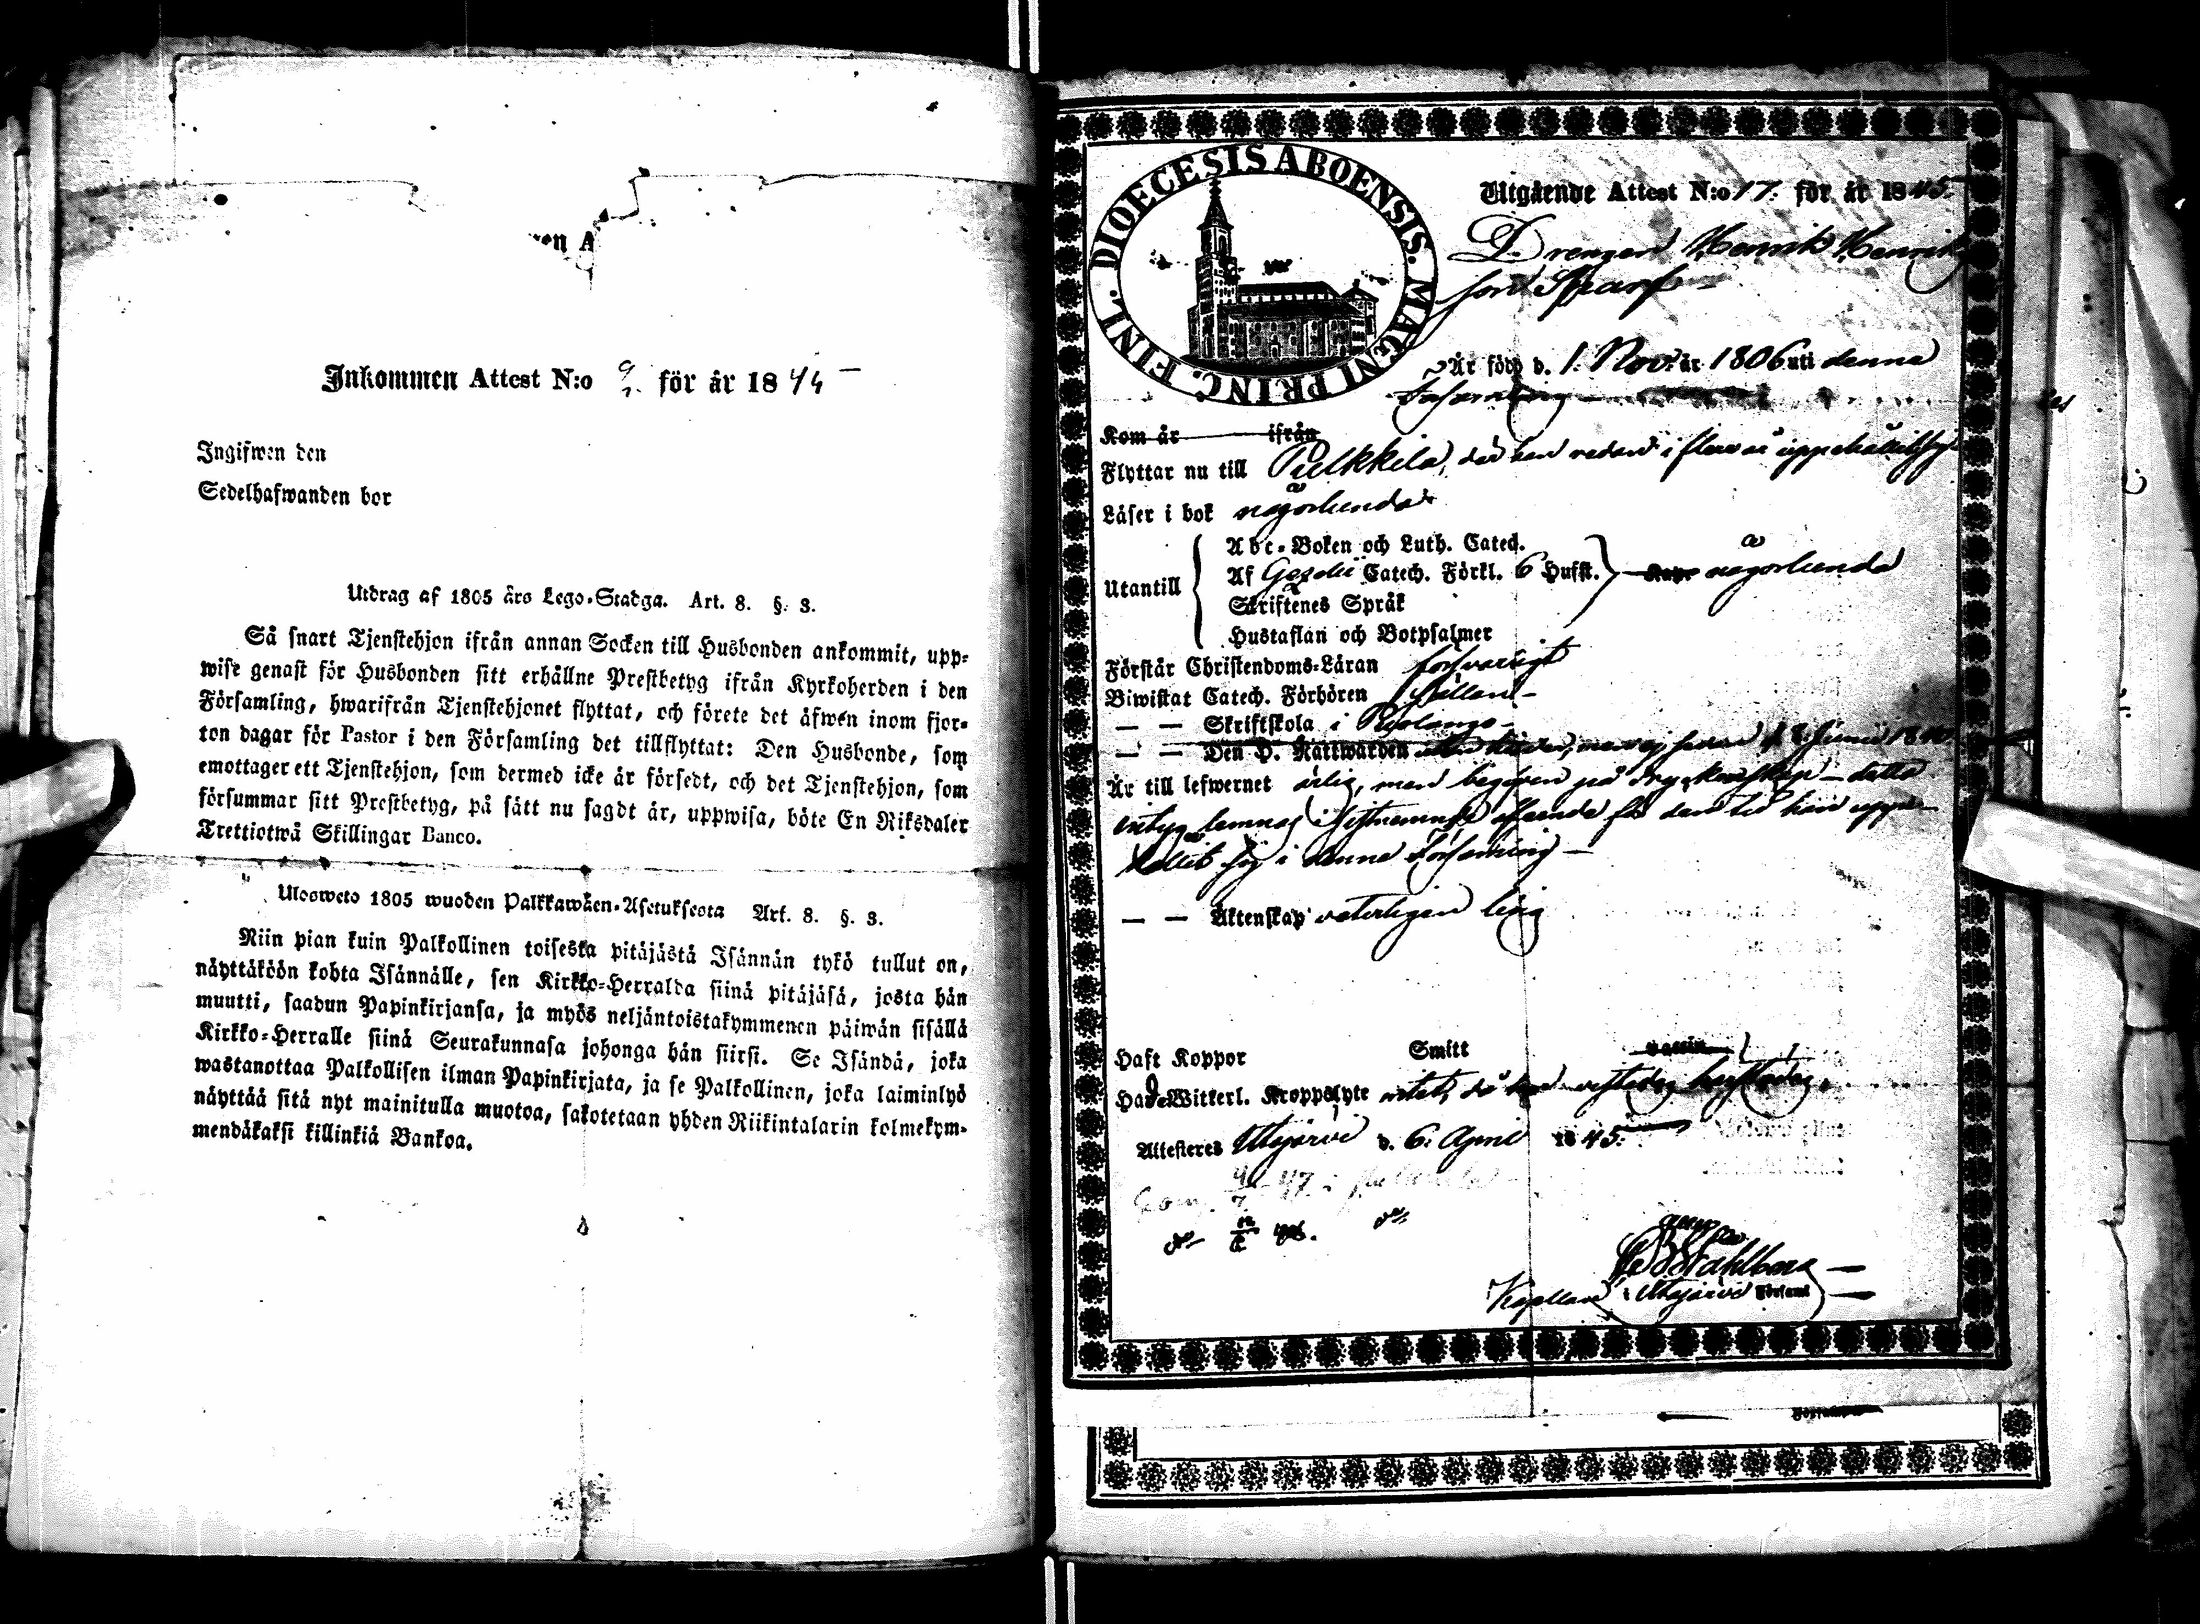 Inkommen Attest N:o för år 18
Ingifwen den
Sedelhafwanden bor
Utdrag af 1805 års Lego-Stadga. Art. 8. §. 3.
Så snart Tjenstehjon ifrån annan Socken till Husbonden ankommit, upp-
wise genast för Husbonden sitt erhållne Prestbetyg ifrån Kyrkoherden i den
Församling, hwarifrån Tjenstehjonet flyttat, och förete det äfwen inom fjor-
ton dagar för Pastor i den Församling det tillflyttat: Den Husbonde, som
emottager ett Tjenstehjon, som dermed icke är försedt, och det Tjenstehjon, som
försummar sitt Prestbetyg, på sätt nu sagdt är, uppwisa, böte En Riksdaler
Trettiotwå Skillingar Banco.
Ulosweto 1805 wuoden Palkkawäen-Asetuksesta Art. 8. §. 3.
Niin pian kuin Palkollinen toisesta pitäjästä Isännän tykö tullut on,
näyttäköön kohta Isännälle, sen Kirkko-Herralda siinä pitäjäsä, josta hän
muutti, saadun Papinkirjansa, ja myös neljäntoistakymmenen päiwän sisällä
Kirkko-Herralle siinä Seurakunnasa johonga hän siirsi. Se Isändä, joka
wastanottaa Palkollisen ilman Papinkirjata, ja se Palkollinen, joka laiminlyö
näyttää sitä nyt mainitulla muotoa, sakotetaan yhden Riikintalarin kolmekym-
mendäkaksi killinkiä Bankoa.
DIOECESIS ABOENSIS. MAGNI PRINC. FINL.
Utgående Attest N:o 17. för år 1845.
Drengen Henrik Henriks
son Skarf
Är född d. 1. Nov. år 1806 uti denna
Församling
Kom år ifrån
Flyttar nu till Pulkkila, der han redan i flera år uppehållit sig
Läser i bok någorlunda
Utantill
Abc-Boken och Luth. Catech.
Af Catech. Förkl. 6 Hufst. någorlunda
Skriftenes Språk
Hustaflan och Botpsalmer
Förstår Christendoms-Läran försvarligt
Biwistat Catech. Förhören sällan
— — Skriftskola i
— — Den H. Nattwarden
Är till lefwernet ärlig, men begifven på dryckenskap — detta
intyg lemnas i sistnämnde afseende för den tid han uppe-
hållit sig i denna Församling —
— — Äktenskap veterligen ledig
Haft Koppor Smitt
Hade Witterl. Kroppslyte
Attesteras Utajärvi d. 6. April 1845.
C B Stahlberg
Kapellan i Utajärvi Förſaml